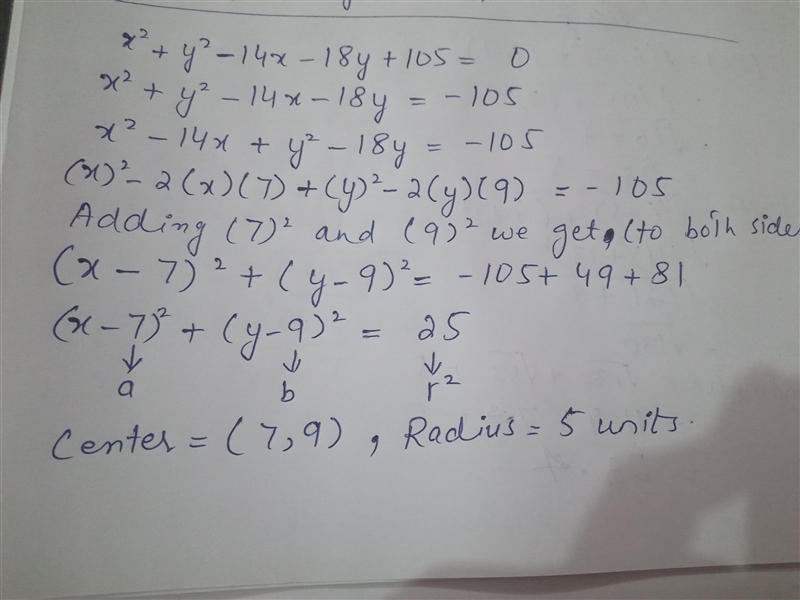 x² + y² - 14x - 18y + 105 = 0
x² + y² - 14x - 18y = -105
x² - 14x + y² - 18y = -105
(x)² - 2(x)(7) + (y)² - 2(y)(9) = -105
Adding (7)² and (9)² we get, (to both side
(x - 7)² + (y - 9)² = -105 + 49 + 81
(x - 7)² + (y - 9)² = 25
↓ ↓ ↓
a b r²
Center = (7, 9), Radius = 5 units.